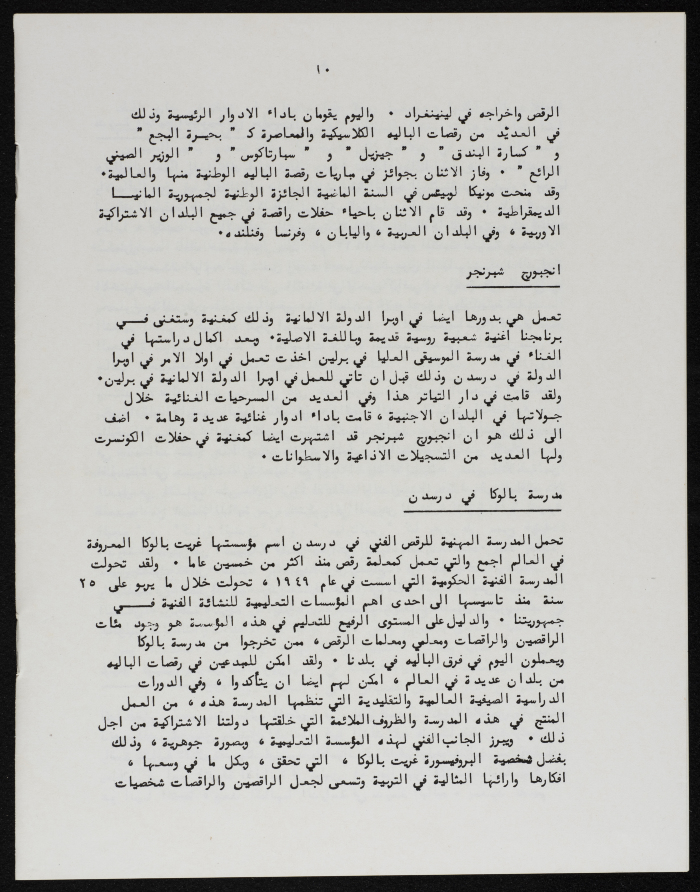 ١٠
الرقص واخراجه في لينينغراد ٠ واليوم يقومان باداء الادوار الرئيسية وذلك
في العديد من رقصات الباليه الكلاسيكية والمعاصرة ك " بحيرة البجع "
و " كسارة البندق " و " جيزيل " و " سبارتاكوس " و " الوزير الصيني
الرائع " ٠ وفاز الاثنان بجوائز في مباريات رقصة الباليه الوطنية منها والعالمية٠
وقد منحت مونيكا لوبيتس في السنة الماضية الجائزة الوطنية لجمهورية المانيا
الديمقراطية ٠ وقد قام الاثنان باحياء حفلات راقصة في جميع البلدان الاشتراكية
الاوربية ، وفي البلدان العربية ، واليابان ، وفرنسا وفنلنده٠
انجبورج شبرنجر
تعمل هي بدورها ايضا في اوبرا الدولة الالمانية وذلك كمغنية وستغنى فـــي
برنامجنا اغنية شعبية روسية قديمة وباللغة الاصلية٠ وبعد اكمال دراستها في
الغناء في مدرسة الموسيقى العليا في برلين اخذت تعمل في اولا الامر في اوبرا
الدولة في درسدن وذلك قبل ان تاتي للعمل في اوبرا الدولة الالمانية في برلين٠
ولقد قامت في دار التياتر هذا وفي العديد من المسرحيات الغنائية خلال
جولاتها في البلدان الاجنبية ، قامت باداء ادوار غنائية عديدة وهامة ٠ اضف
الى ذلك هو ان انجبورج شبرنجر قد اشتهرت ايضا كمغنية في حفلات الكونسرت
ولها العديد من التسجيلات الاذاعية والاسطوانات ٠
مدرسة بالوكا في درسدن
تحمل المدرسة المهنية للرقص الفني في درسدن اسم مؤسستها غريت بالوكا المعروفة
في العالم اجمع والتي تعمل كمعلمة رقص منذ اكثر من خمسين عاما ٠ ولقد تحولت
المدرسة الفنية الحكومية التي اسست في عام ١٩٤٩ ، تحولت خلال ما يربو على ٢٥
سنة منذ تاسيسها الى احدى اهم المؤسسات التعليمية للنشائة الفنية فـــي
جمهوريتنا ٠ والدليل على المستوى الرفيع للتعليم في هذه المؤسسة هو وجود مئات
الراقصين والراقصات ومعلمي ومعلمات الرقص ، ممن تخرجوا من مدرسة بالوكا
ويعملون اليوم في فرق الباليه في بلدنا ٠ ولقد امكن للمبدعين في رقصات الباليه
من بلدان عديدة في العالم ، امكن لهم ايضا ان يتأكدوا ، وفي الدورات
الدراسية الصيفية العالمية والتقليدية التي تنظمها المدرسة هذه ، من العمل
المنتج في هذه المدرسة والظروف الملائمة التي خلقتها دولتنا الاشتراكية من اجل
ذلك ٠ ويبرز الجانب الفني لهذه المؤسسة التعليمية ، وبصورة جوهرية ، وذلك
بفضل شخصية البروفيسورة غريت بالوكا ، التي تحقق ، وبكل ما في وسعها ،
افكارها وارائها المثالية في التربية وتسعى لجعل الراقصين والراقصات شخصيات